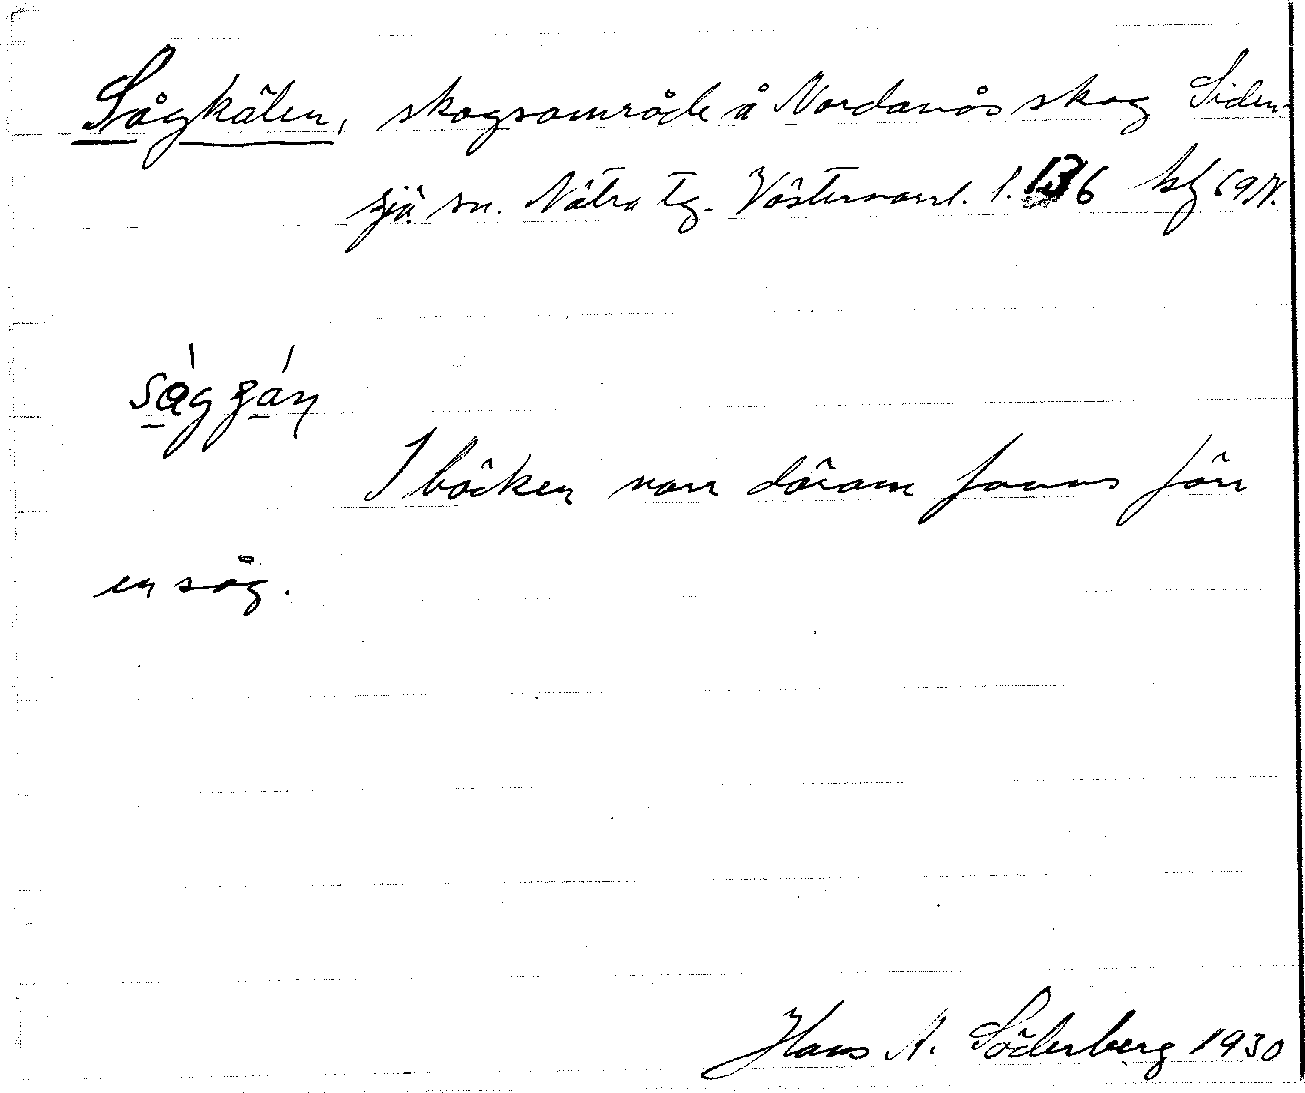 Sågkälen, skogsområde å Nordanås skog Siden-
sjö sn. Nätra tg. Västernorrl. l. 136
såggán
I bäcken norr därom fanns förr
en såg.
Hans A. Söderberg 1930